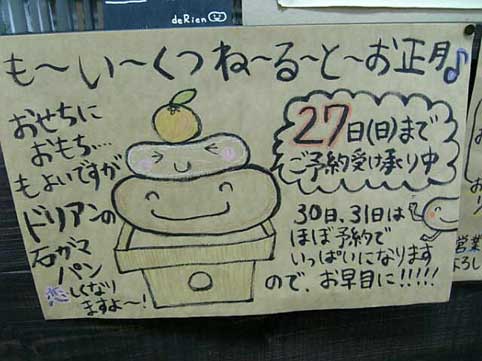 deRien
も〜い〜くつね〜る〜と〜お正月♪
おせちに
おもち…
もよいですが
ドリアンの
石ガマ
パン
恋しくなり
ますよ〜!
27日(日)まで
ご予約受け承り中
30日、31日は
ほぼ予約で
いっぱいになります
ので、お早目に!!!!!
営業
よろし